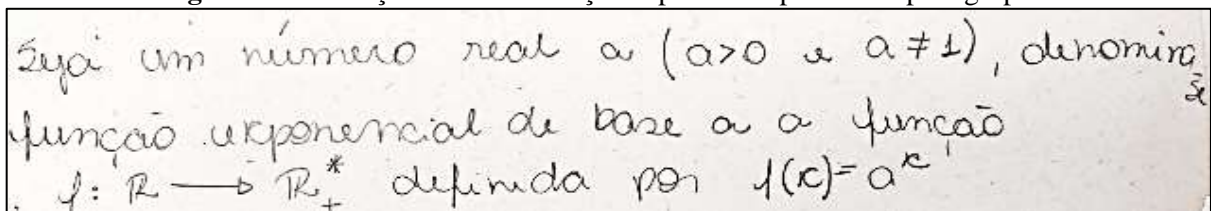 Seja um número real a (a>0 e a ≠ 1), denomina-se
função exponencial de base a a função
f: ℝ → ℝ₊* definida por f(x) = aˣ